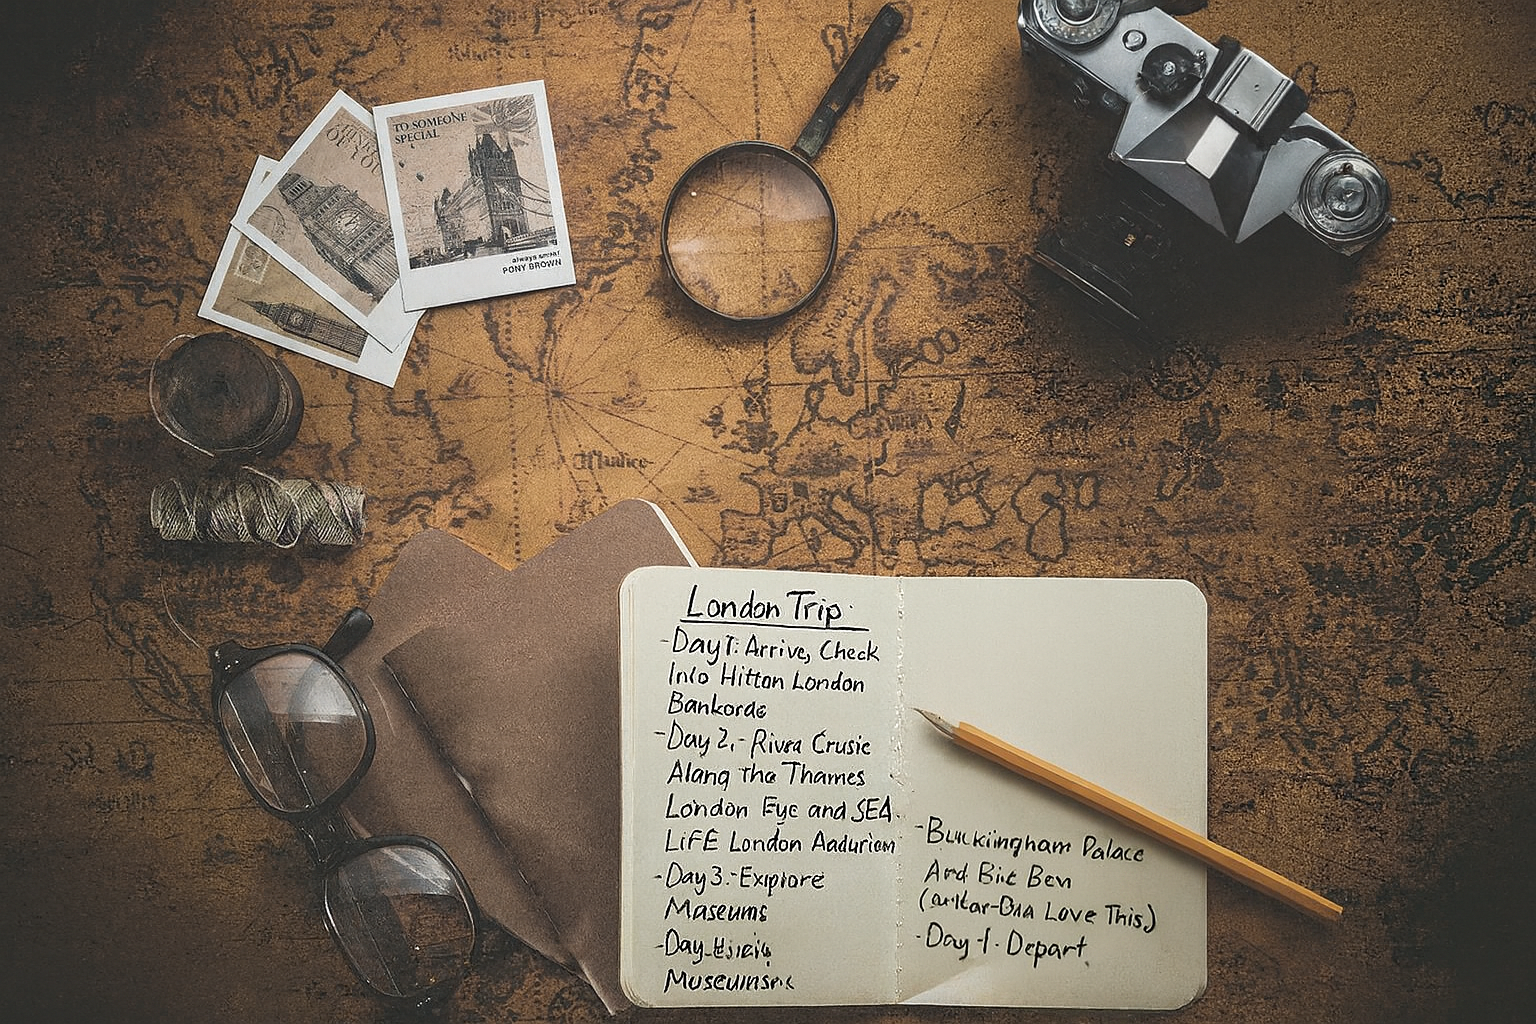 TO SOMEONE
SPECIAL
OF YOU
PONY BROWN
London Trip
-Day 1: Arrive, Check
Into Hitton London
Bankorde
-Day 2.- Rivea Crusie
Alang the Thames
London Eye and SEA
LiFE London Aaduriom
-Day 3.-Expiore
Maseums
-Day
-Buckiingham Palace
And Bit Ben
Love This)
-Day -1. Depart